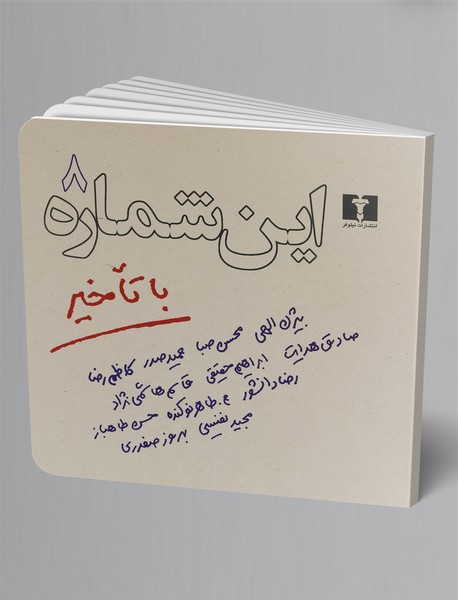 ۸
این شماره
انتشارات نیلوفر
با تأخیر
بیژن الهی محسن صبا حمید صدر کاظم رضا
صادق هدایت ابراهیم حقیقی قاسم هاشمی‌نژاد
رضا دانشور م. طاهر نوکنده حسن طاهباز
مجید نفیسی بهروز صفدری